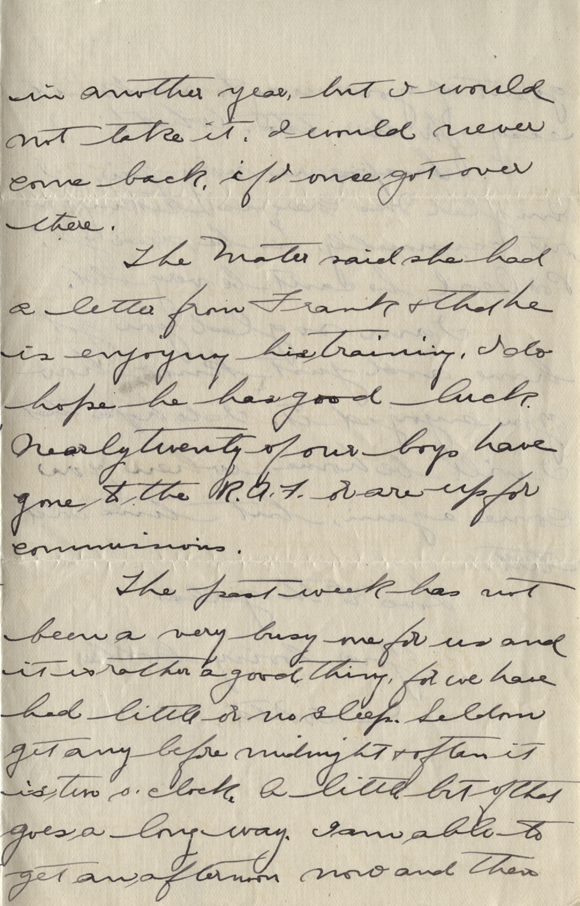 in another year, but I would
not take it. I would never
come back, if I once got over
there.
The Mater said she had
a letter from Frank & that he
is enjoying his training. I do
hope he has good luck.
Nearly twenty of our boys have
gone to the R.A.F. or are up for
commissions.
The past week has not
been a very busy one for us and
it is rather a good thing, for we have
had little or no sleep. Seldom
get any before midnight & often it
is two o. clock. A little bit of that
goes a long way. I am able to
get an afternoon now and then